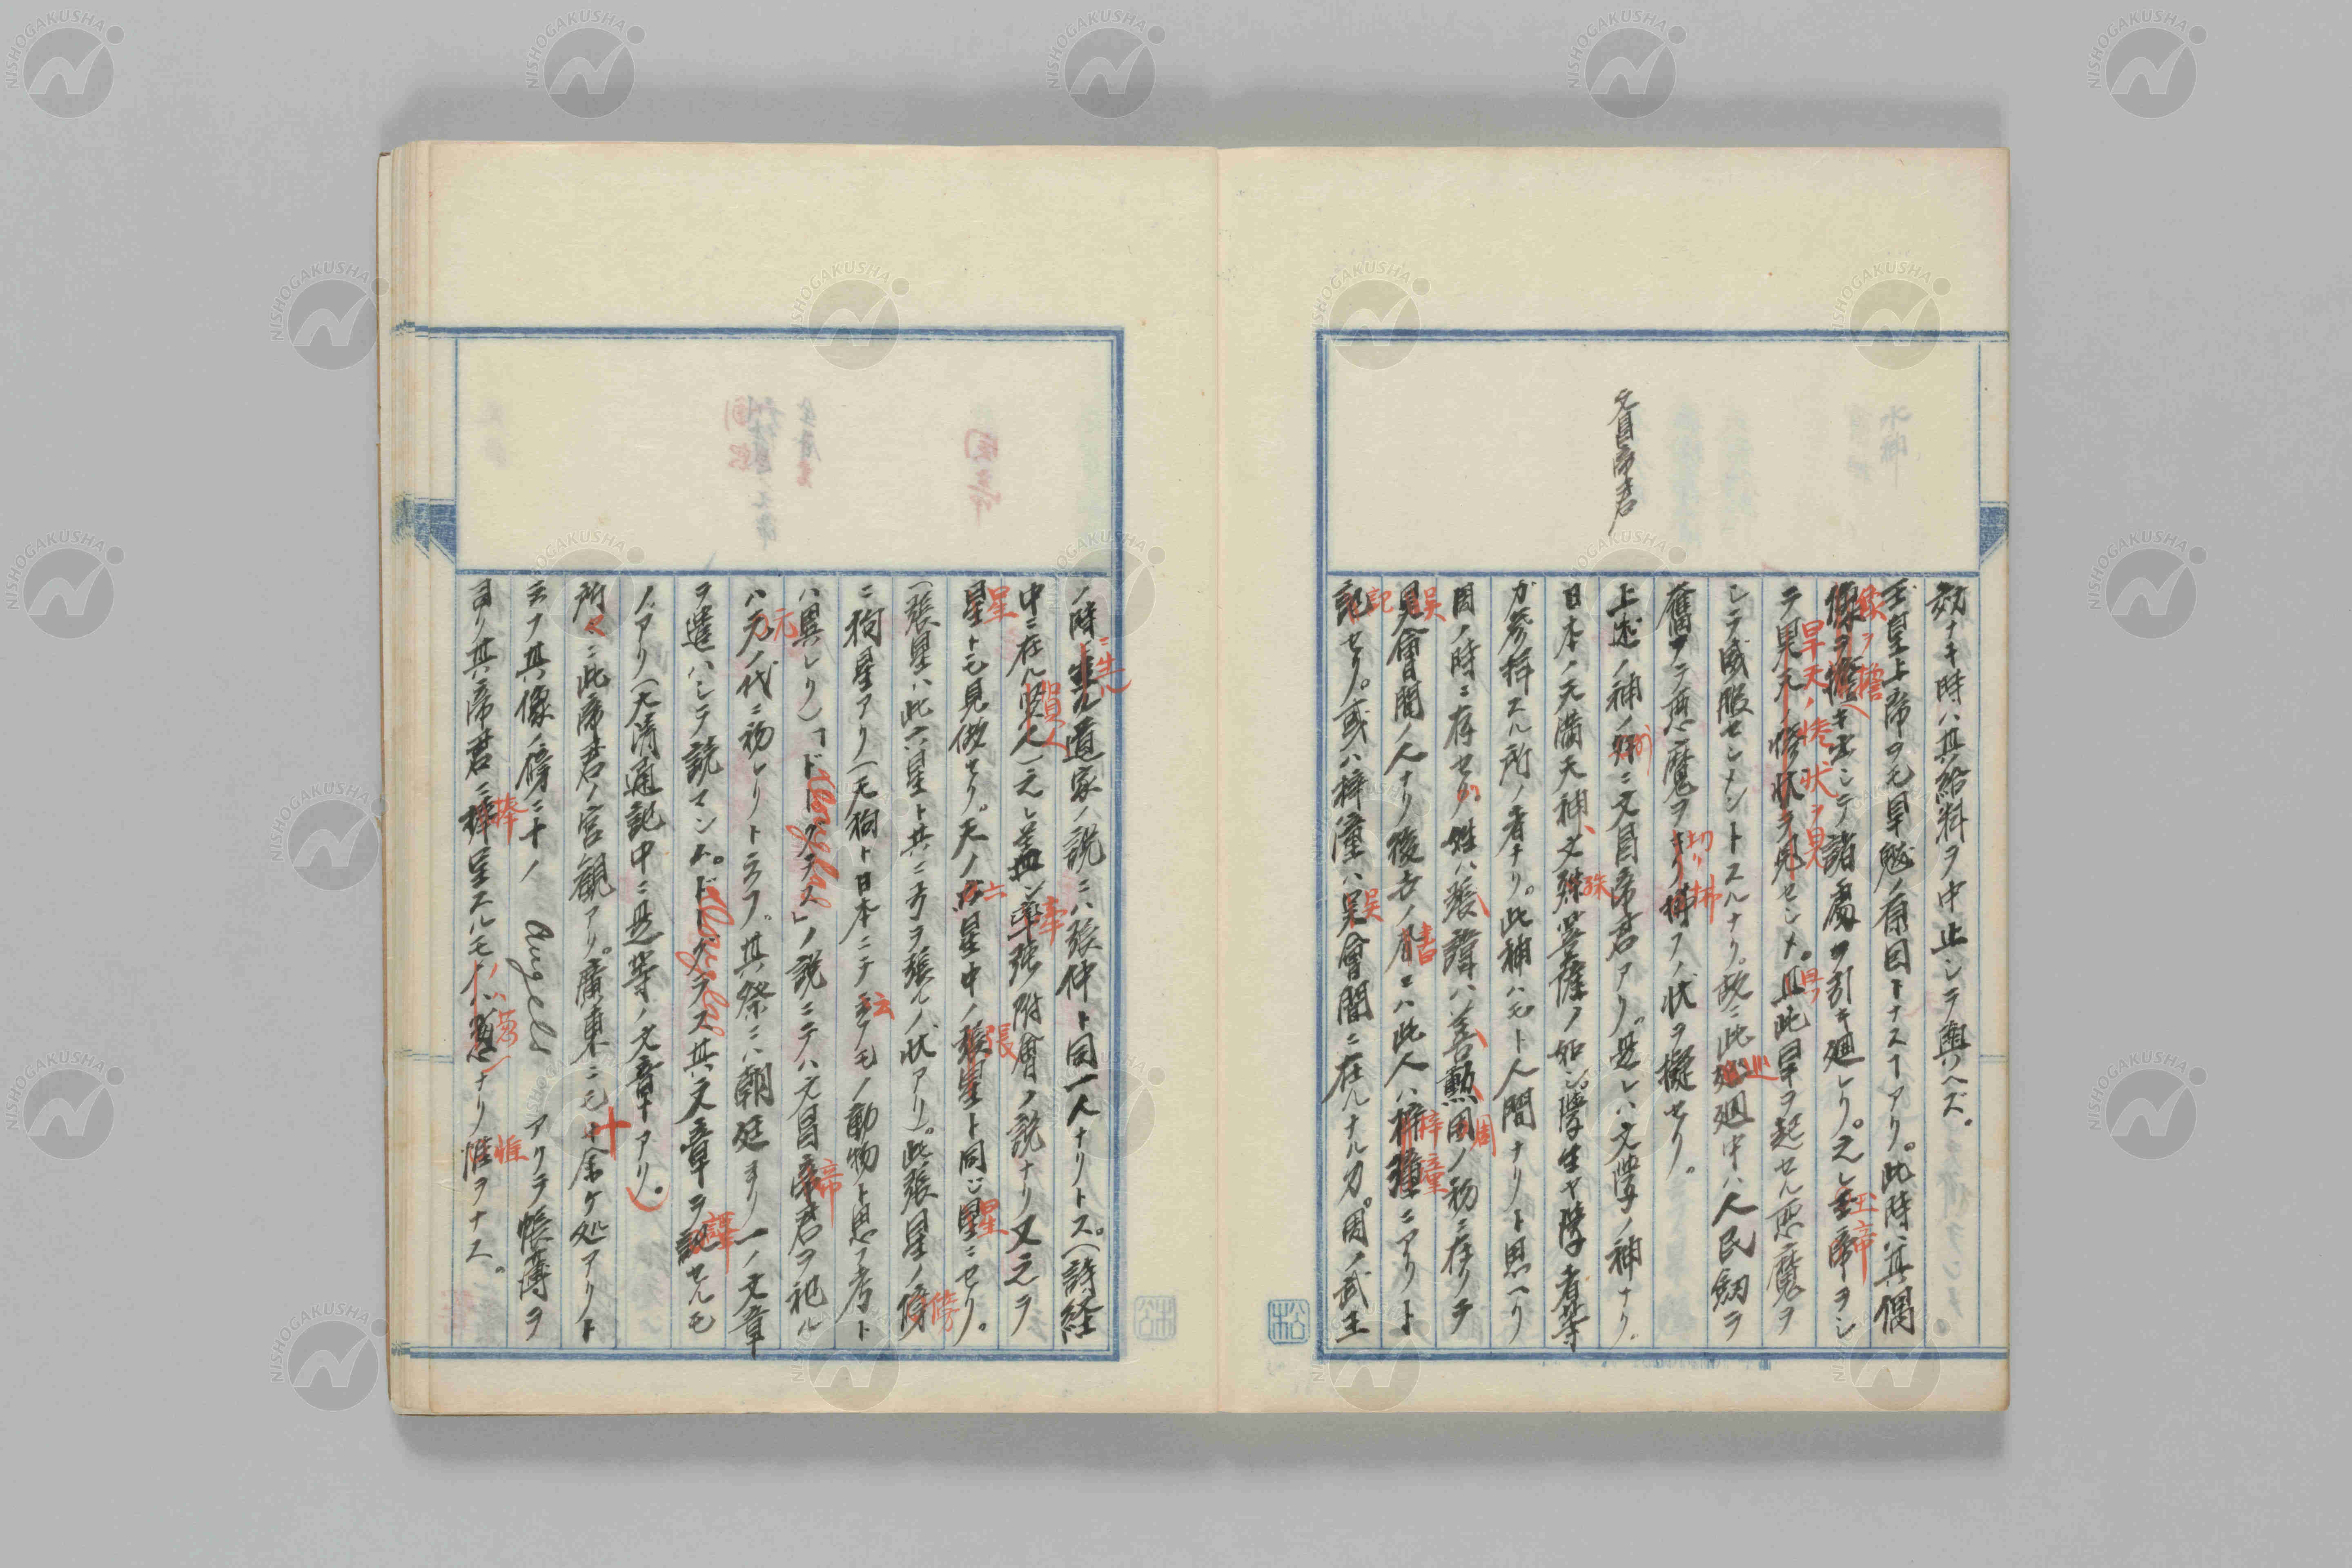 文昌帝君
効ナキ時ハ其給料ヲ中止シテ與ヘズ。
玉皇上帝ヲモ旱魃ノ原因トナスコアリ。此時ハ其偶
像ヲ擔キ出シテ諸處ヲ引キ廻レリ。之レ玉帝ヲシ
像ヲ擔
玉帝
テ旱天ノ惨状ヲ見セシメ。且此旱ヲ起セル悪魔ヲ
旱天ノ惨状ヲ見
且
シテ威服セシメントスルナリ。故ニ此巡廻中ハ人民劔ヲ
巡
奮フテ悪魔ヲキリ拂フノ状ヲ擬セリ。
切リ拂
上述ノ神ノ外ニ文昌帝君アリ。是レハ文學ノ神ナリ。
外
日本ノ天満天神、文殊菩薩ノ如シ。學生ヤ學者等
殊
ガ参拝スル所ノ者ナリ。此神ハモト人間ナリト思ヘリ
周ノ時ニ存セリ。姓ハ張、諱ハ善勲、周ノ初ニ在リテ
周
見會間ノ人ナリ後世ノ書ニハ此人ハ梓潼ニアリト
呉
書
梓潼
記セリ。或ハ梓潼ハ呉會間ニ在ルナル乎。周ノ武王
記
呉
ノ時ト生ル道家ノ説ニハ張仲ト同一人ナリトス。(詩経
ニ生ル
中ニ在ル賢人)之レ蓋シ牽強附會ノ説ナリ又之ヲ
賢人
牽
星トモ見做セリ。天ノ六星中ノ張星ト同ジ星ニセリ。
星
六
張
星
(張星ハ此六星ト共ニ弓ヲ張ルノ状アリ)。此張星ノ傍
傍
ニ狗星アリ(天狗ト日本ニテ云フモノ動物ト思フ考ト
云
ハ異レリ)「ドーグラス」ノ説ニテハ文昌帝君ヲ祀ル
Douglas
帝
ハ元ノ代ニ初レリト云フ。其祭ニハ朝廷ヨリ一ノ文章
元
ヲ遣ハシテ読マシム。ドーグラス其文章ヲ訳セルモ
Douglas
譯
ノアリ(大清通記中ニ是等ノ文章アリ。)
所々ニ此帝君ノ宮観アリ。廣東ニモ十余ケ処アリト
十
云フ其像ノ傍ニ十ノ Angels アリテ帳簿ヲ
司リ其帝君ニ捧呈スルモノハ葱ナリ惟ヲナス。
捧
ノハ葱
惟
松